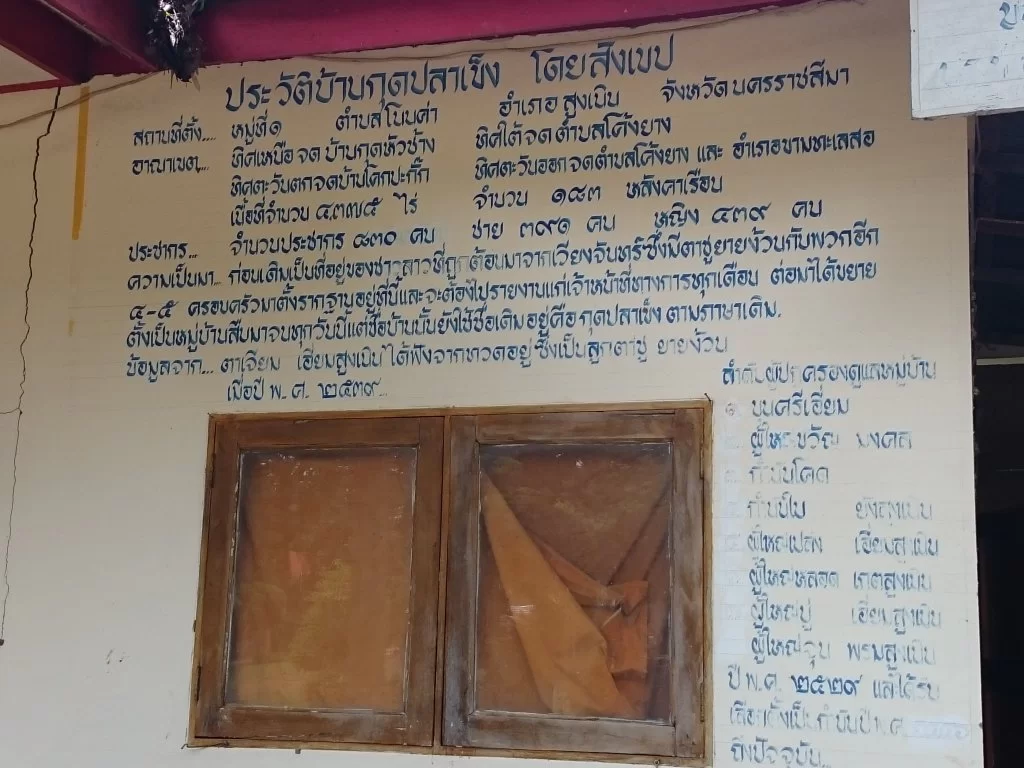 ประวัติบ้านกุดปลาเข็ง โดยสังเขป
สถานที่ตั้ง.... หมู่ที่ ๑ ตำบลโนนค่า อำเภอสูงเนิน จังหวัดนครราชสีมา
อาณาเขต.... ทิศเหนือจดบ้านกุดหัวช้าง ทิศใต้จดตำบลโค้งยาง
ทิศตะวันตกจดบ้านโคกปะกั๊ก ทิศตะวันออกจดตำบลโค้งยาง และ อำเภอขามทะเลสอ
เนื้อที่จำนวน ๔,๓๗๕ ไร่ จำนวน ๑๘๓ หลังคาเรือน
ประชากร... จำนวนประชากร ๘๓๐ คน ชาย ๓๙๑ คน หญิง ๔๓๙ คน
ความเป็นมา... ก่อนเดิมเป็นที่อยู่ของชาวลาวที่ถูกต้อนมาจากเวียงจันทร์ซึ่งมีตาชูยายง้วนกับพวกอีก
๔-๕ ครอบครัวมาตั้งรากฐานอยู่ที่นี่และจะต้องไปรายงานแก่เจ้าหน้าที่ทางการทุกเดือน ต่อมาได้ขยาย
ตั้งเป็นหมู่บ้านสืบมาจนทุกวันนี้แต่ชื่อบ้านนั้นยังใช้ชื่อเดิมอยู่คือกุดปลาเข็งตามภาษาเดิม.
ข้อมูลจาก... ตาเจียม เอี่ยมสูงเนิน ได้ฟังจากทวดอยู่ ซึ่งเป็นลูกตาชู ยายง้วน
เมื่อปี พ.ศ. ๒๕๓๙...
ลำดับผู้ปกครองดูแลหมู่บ้าน
๑. ขุนศรีเอี่ยม
ผู้ใหญ่ขวัญ มงคล
กำนันโคด
กำนัน ยังสูงเนิน
ผู้ใหญ่ เอี่ยมสูงเนิน
ผู้ใหญ่หลอด เกตสูงเนิน
ผู้ใหญ่ปู่ เอี่ยมสูงเนิน
ผู้ใหญ่จุน พรมสูงเนิน
ปี พ.ศ. ๒๕๒๙ และได้รับ
เลือกตั้งเป็นกำนันปี พ.ศ.
ถึงปัจจุบัน...